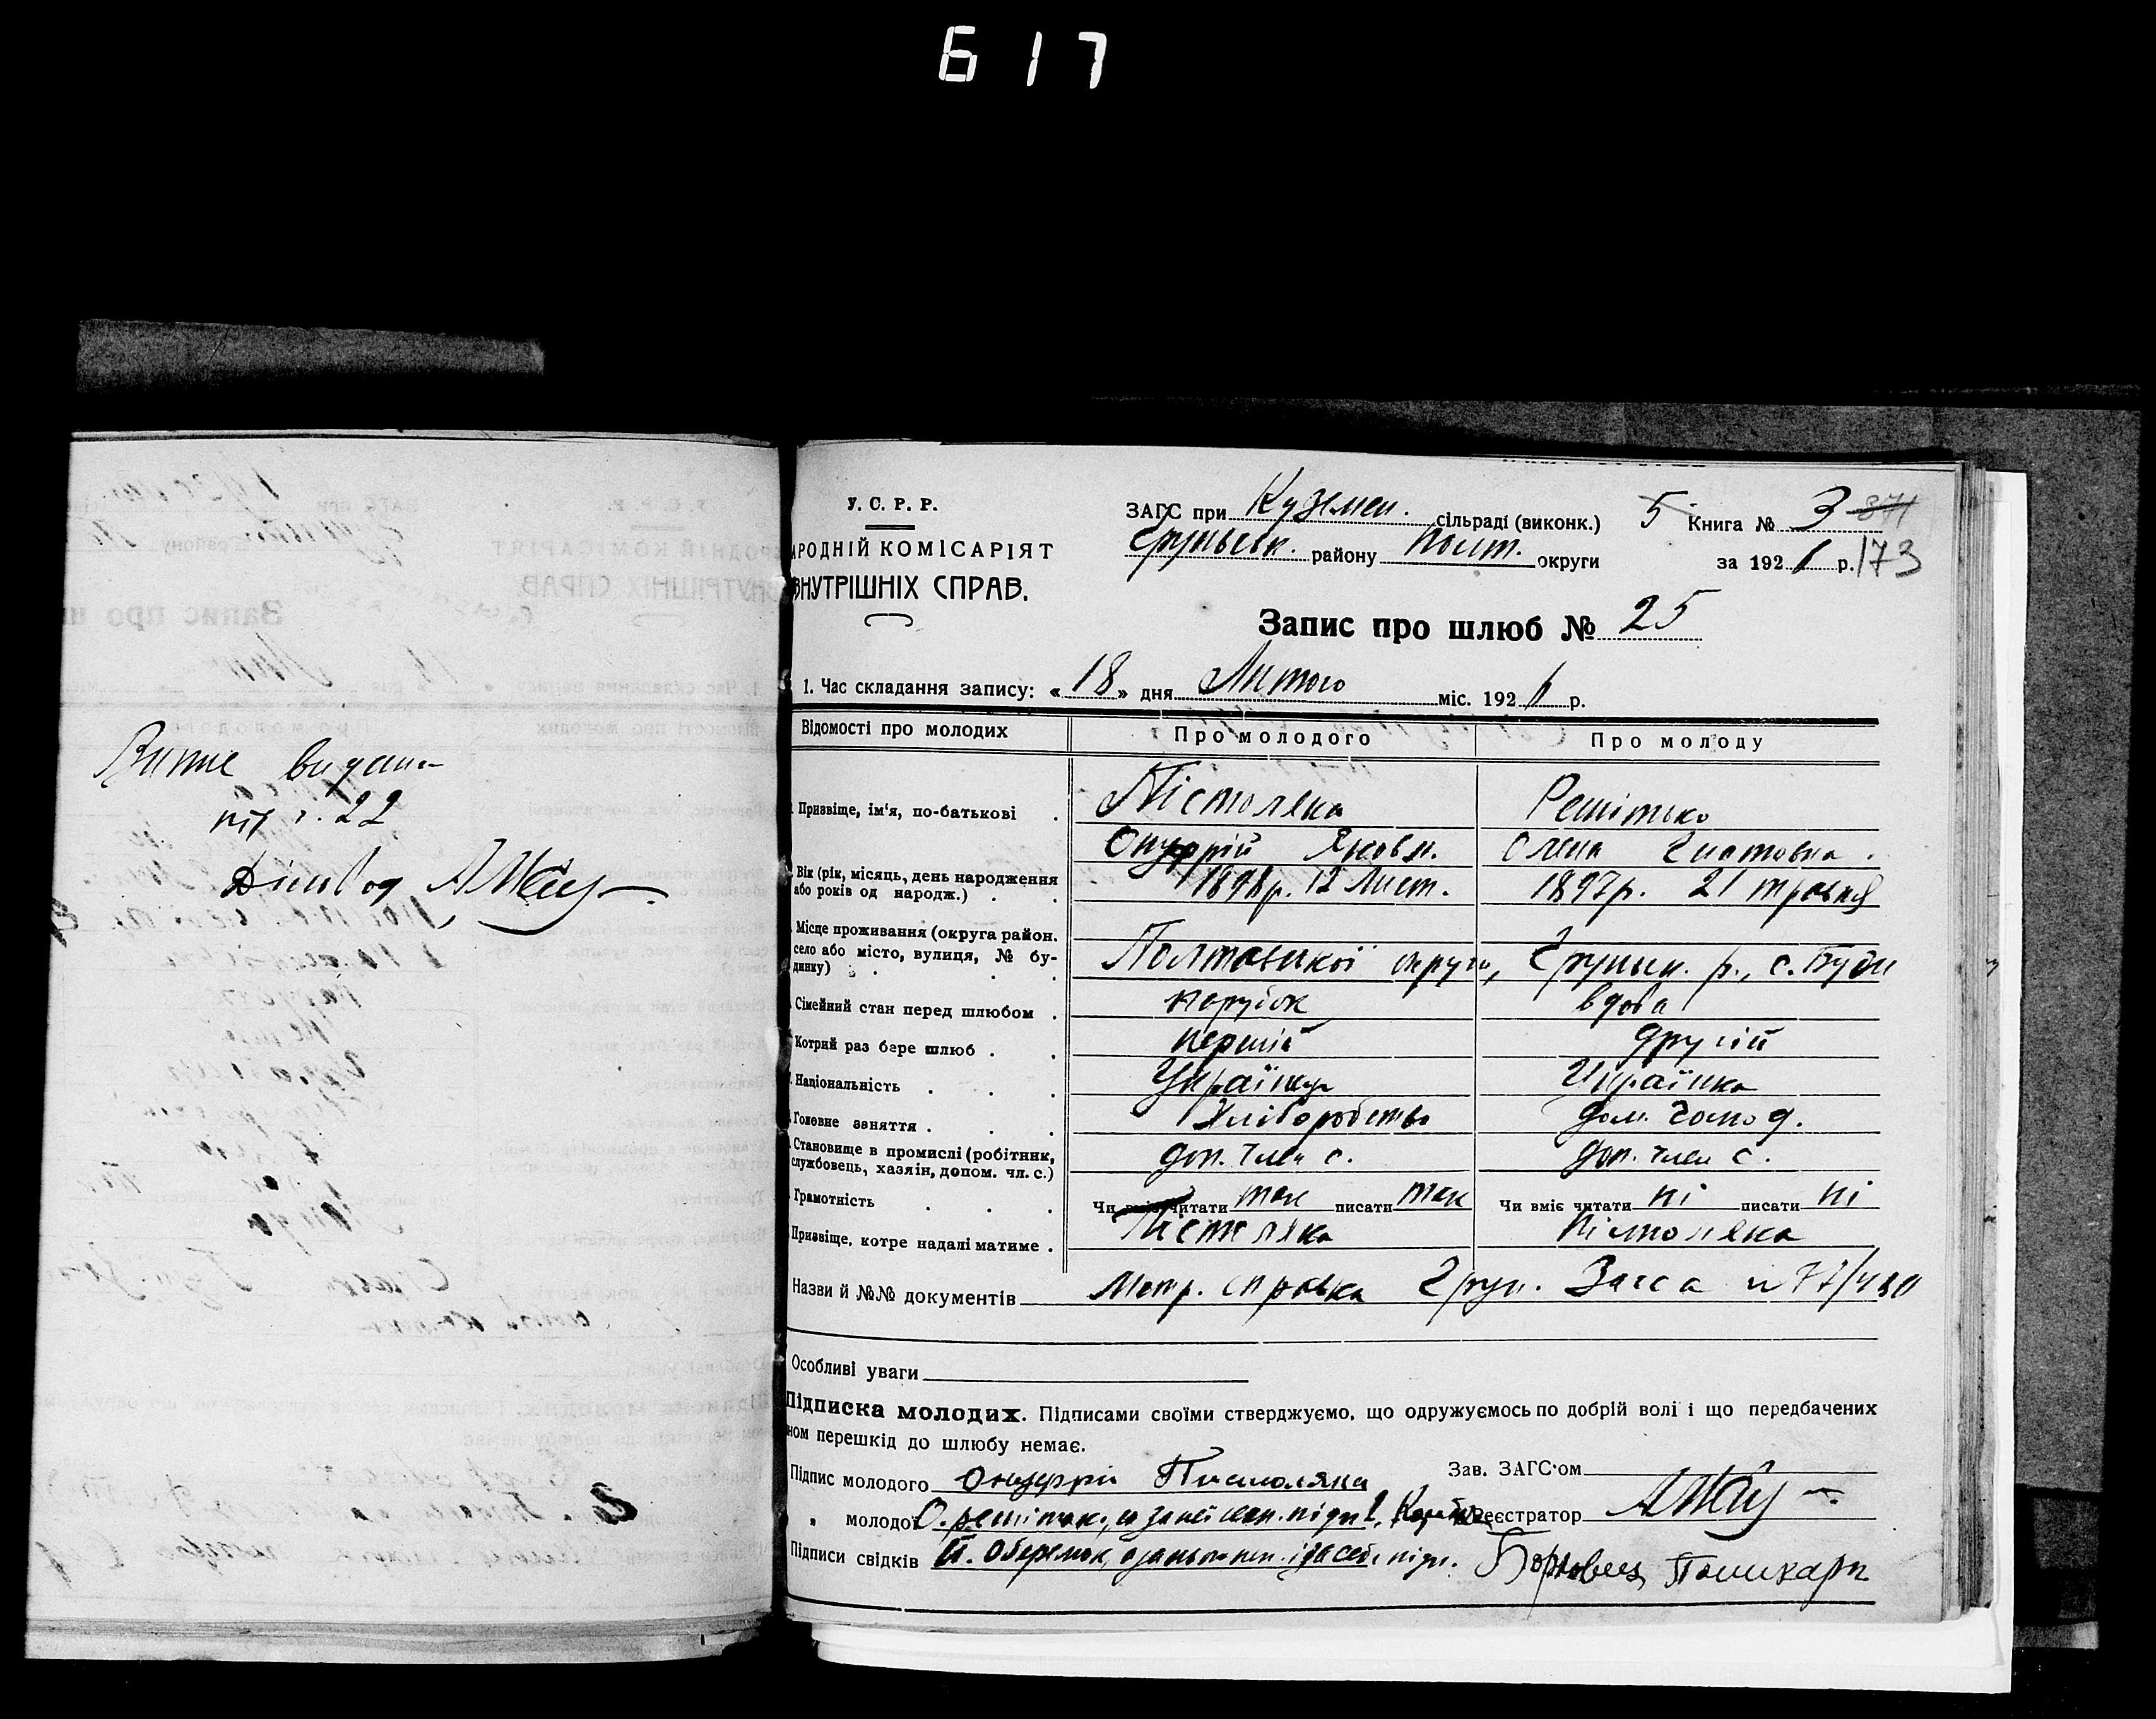 617
Витяг видано
під ч. 22
Діловод
У. С. Р. Р.
АРОДНІЙ КОМІСАРІЯТ
ВНУТРІШНІХ СПРАВ.
ЗАГС при Куземен. сільраді (виконк.) 5 Книга № 3 371
Грунськ. району Полт. округи за 1926 р. 173
Запис про шлюб № 25
1. Час складання запису: « 18 » дня Лютого міс. 1926 р.
Відомості про молодих Про молодого Про молоду
Призвіще, ім'я, по-батькові . Пістоляка Решітько
Онуфрій Яковл. Олена Гнатовна.
Вік (рік, місяць, день народження або років од народж.) . . 1898 р. 12 Лист. 1897р. 21 травня
Місце проживання (округа район. село або місто, вулиця, № будинку) . . . Полтавської округи, Грунськ. р., с. Буди
Сімейний стан перед шлюбом . парубок вдова
Котрий раз бере шлюб . . перший другий
Національність . . . Українець Українка
Головне заняття . . . Хліборобство дом. господ.
Становище в промислі (робітник, службовець, хазяін, допом. чл. с.) доп. член с. доп. член с.
Грамотність . . . Чи вміє читати так писати так Чи вміє читати ні писати ні
Призвіще, котре надалі матиме . Пістоляка Пістоляка
Назви й №№ документів Метр. справка Грун. Загса
Особливі уваги
Підписка молодих. Підписами своїми стверджуємо, що одружуємось по добрій волі і що передбачених
ном перешкід до шлюбу немає.
Підпис молодого Онуфрій Пистоляка Зав. ЗАГС'ом
„ молодої О. решітько, а за неї негр. підп. Реєстратор
Підписи свідків Боровець Поликарп